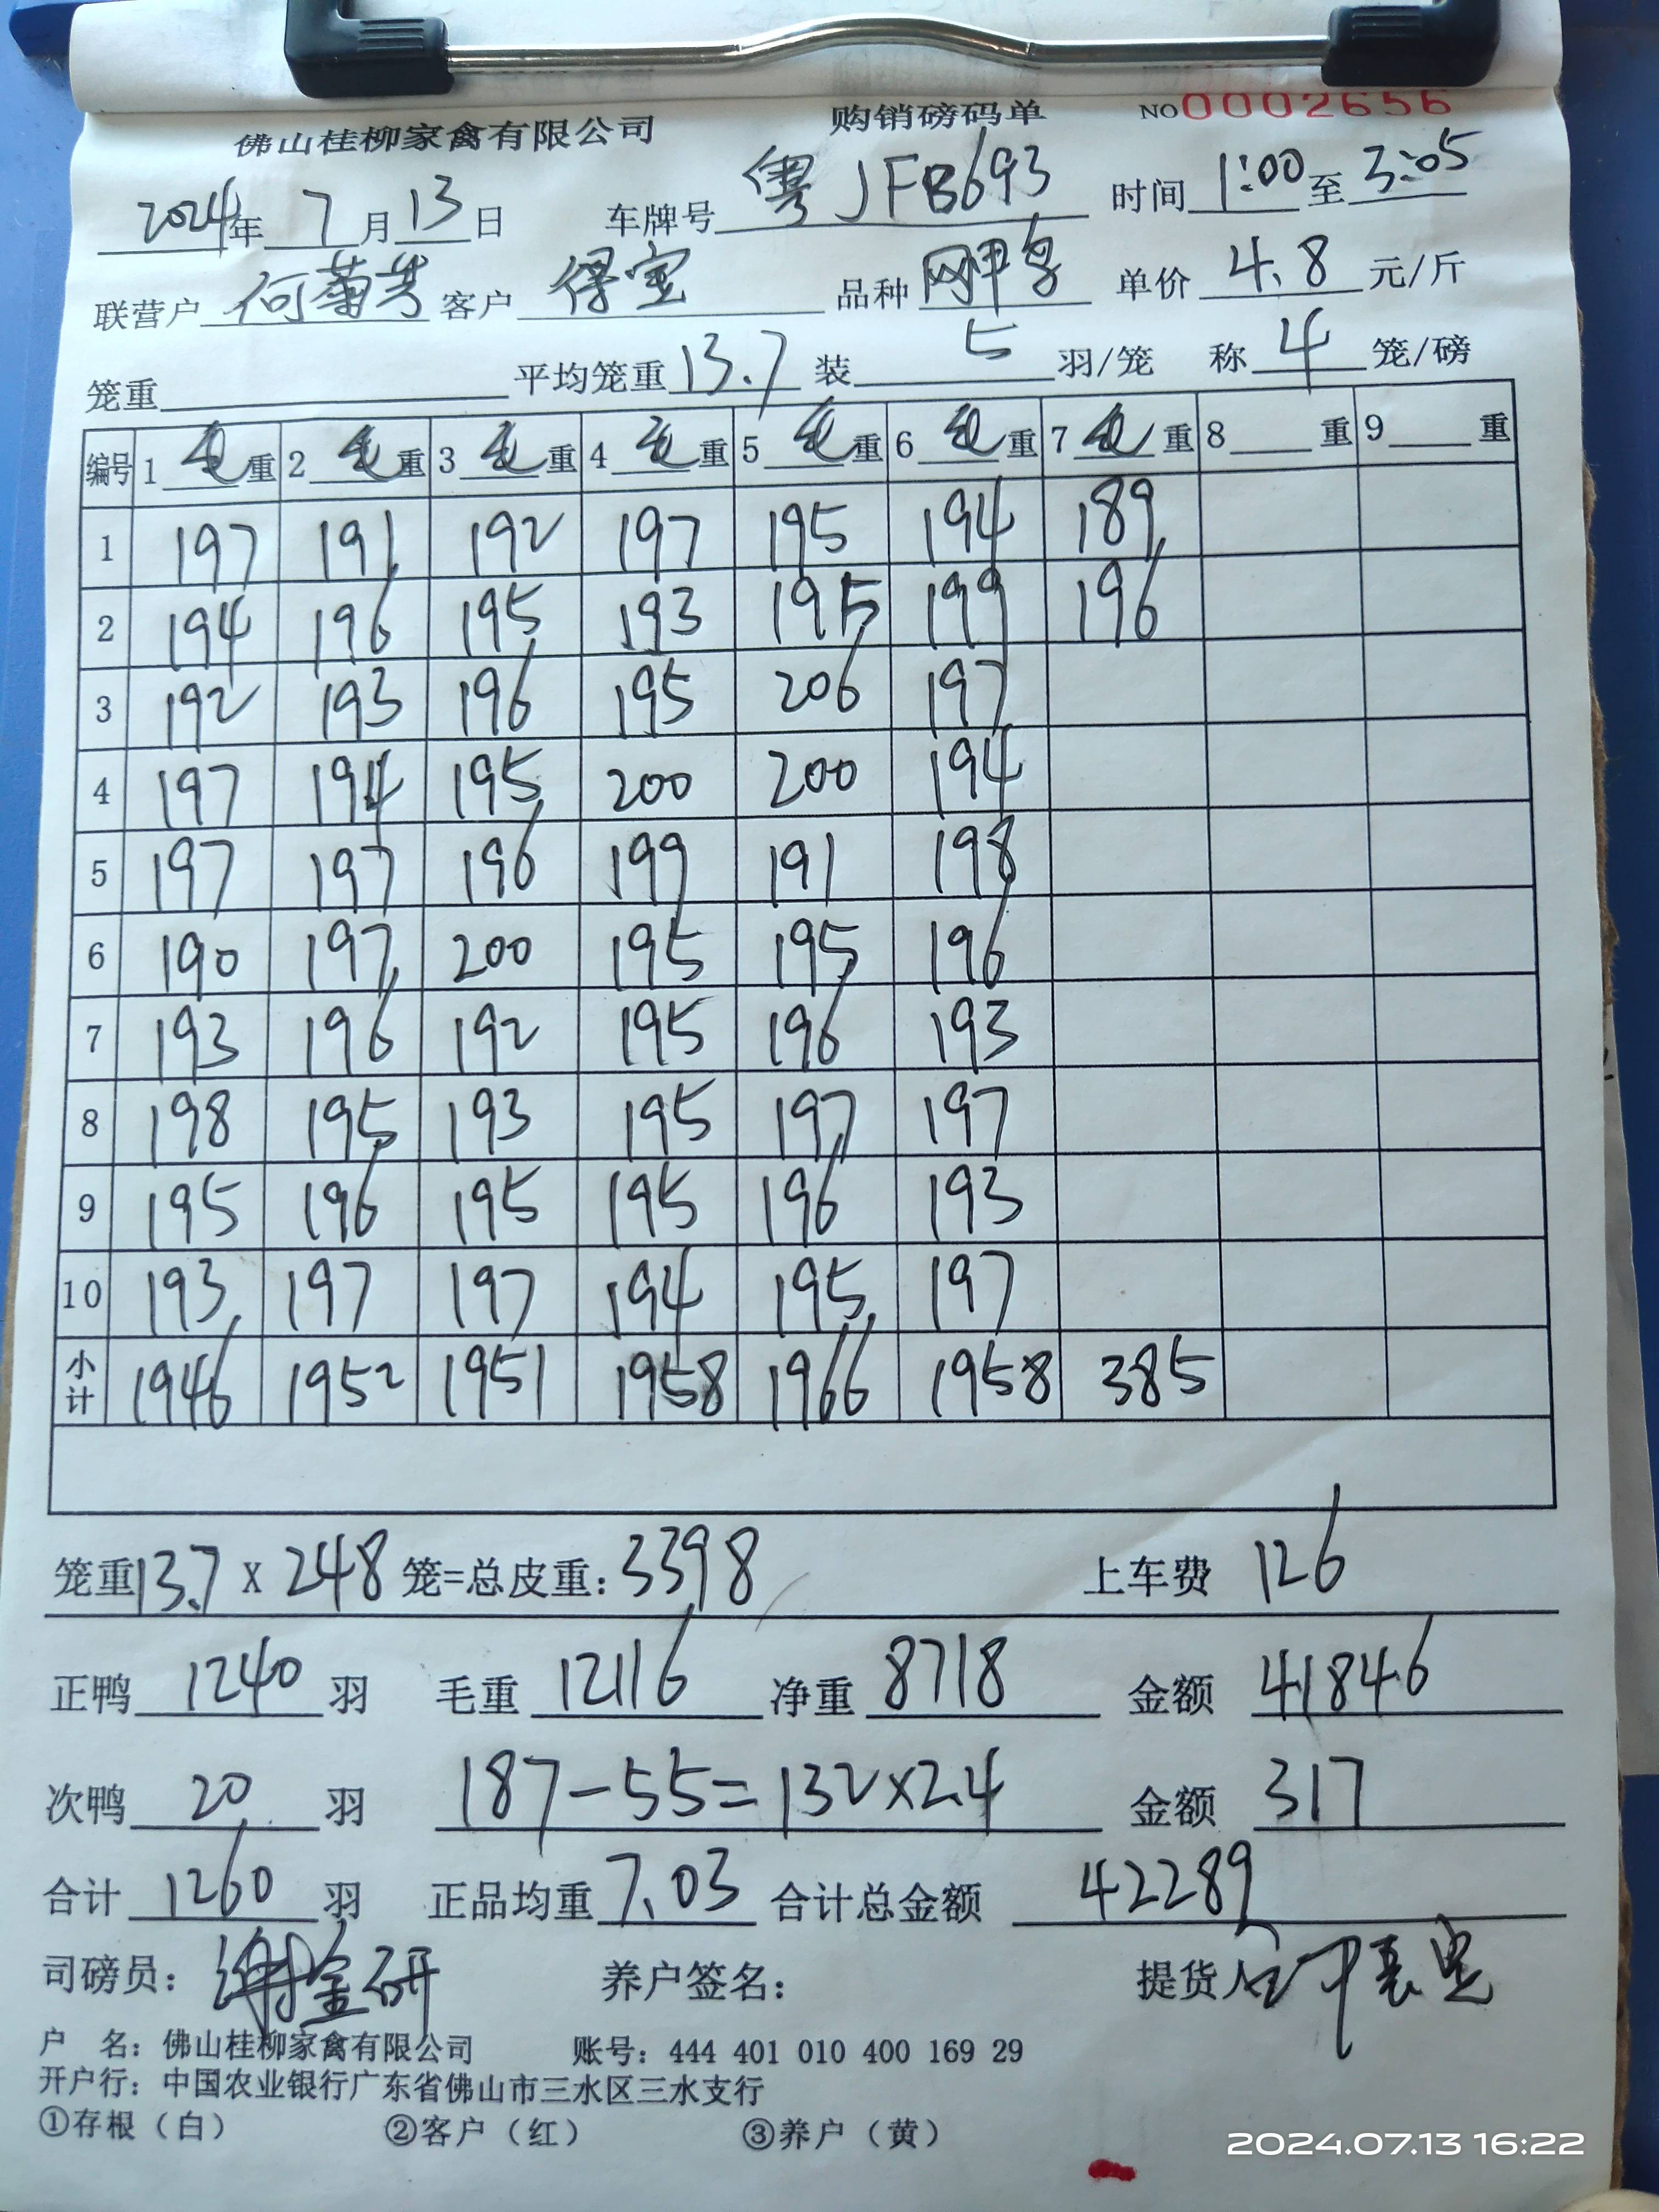 佛山桂柳家禽有限公司 购销磅码单 NO 0002656
2024年 7月13日 车牌号 粤JFB693 时间 1:00 至 3:05
联营户 何菊芳 客户 得宝 品种 网甲 单价 4.8 元/斤
笼重 平均笼重 13.7 装 5 羽/笼 称 4 笼/磅
编号 1 毛重 2 毛重 3 毛重 4 毛重 5 毛重 6 毛重 7 毛重 8 重 9 重
1 197 191 192 197 195 194 189
2 194 196 195 193 195 199 196
3 192 193 196 195 206 197
4 197 194 195 200 200 194
5 197 197 196 199 191 198
6 190 197 200 195 195 196
7 193 196 192 195 196 193
8 198 195 193 195 197 197
9 195 196 195 195 196 193
10 193 197 197 194 195 197
小计 1946 1952 1951 1958 1966 1958 385
笼重 13.7 X 248 笼=总皮重: 3398 上车费 126
正鸭 1240 羽 毛重 12116 净重 8718 金额 41846
次鸭 20 羽 187-55=132×2.4 金额 317
合计 1260 羽 正品均重 7.03 合计总金额 42289
司磅员: 谢金研 养户签名: 提货人
户 名: 佛山桂柳家禽有限公司 账号: 444 401 010 400 169 29
开户行: 中国农业银行广东省佛山市三水区三水支行
①存根（白） ②客户（红） ③养户（黄）
2024.07.13 16:22